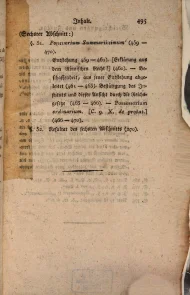 Inhalt. 495
(Sechster Abschnitt:)
§. 51. Possessorium Summariissimum (459 —
470).
Entstehung 459 — 462). (Erklärung aus
dem Römischen Recht (462). — Be-
schaffenheit, aus seiner Entstehung abge-
leitet (462 — 463). Bestätigung des In-
stituts und dieser Ansicht durch die Reichs-
gesetze (463 — 466). — Possessorium
ordinarium. [C. 9. X. de probat.]
(466 — 470).
§. 52. Resultat des sechsten Abschnitts (470).